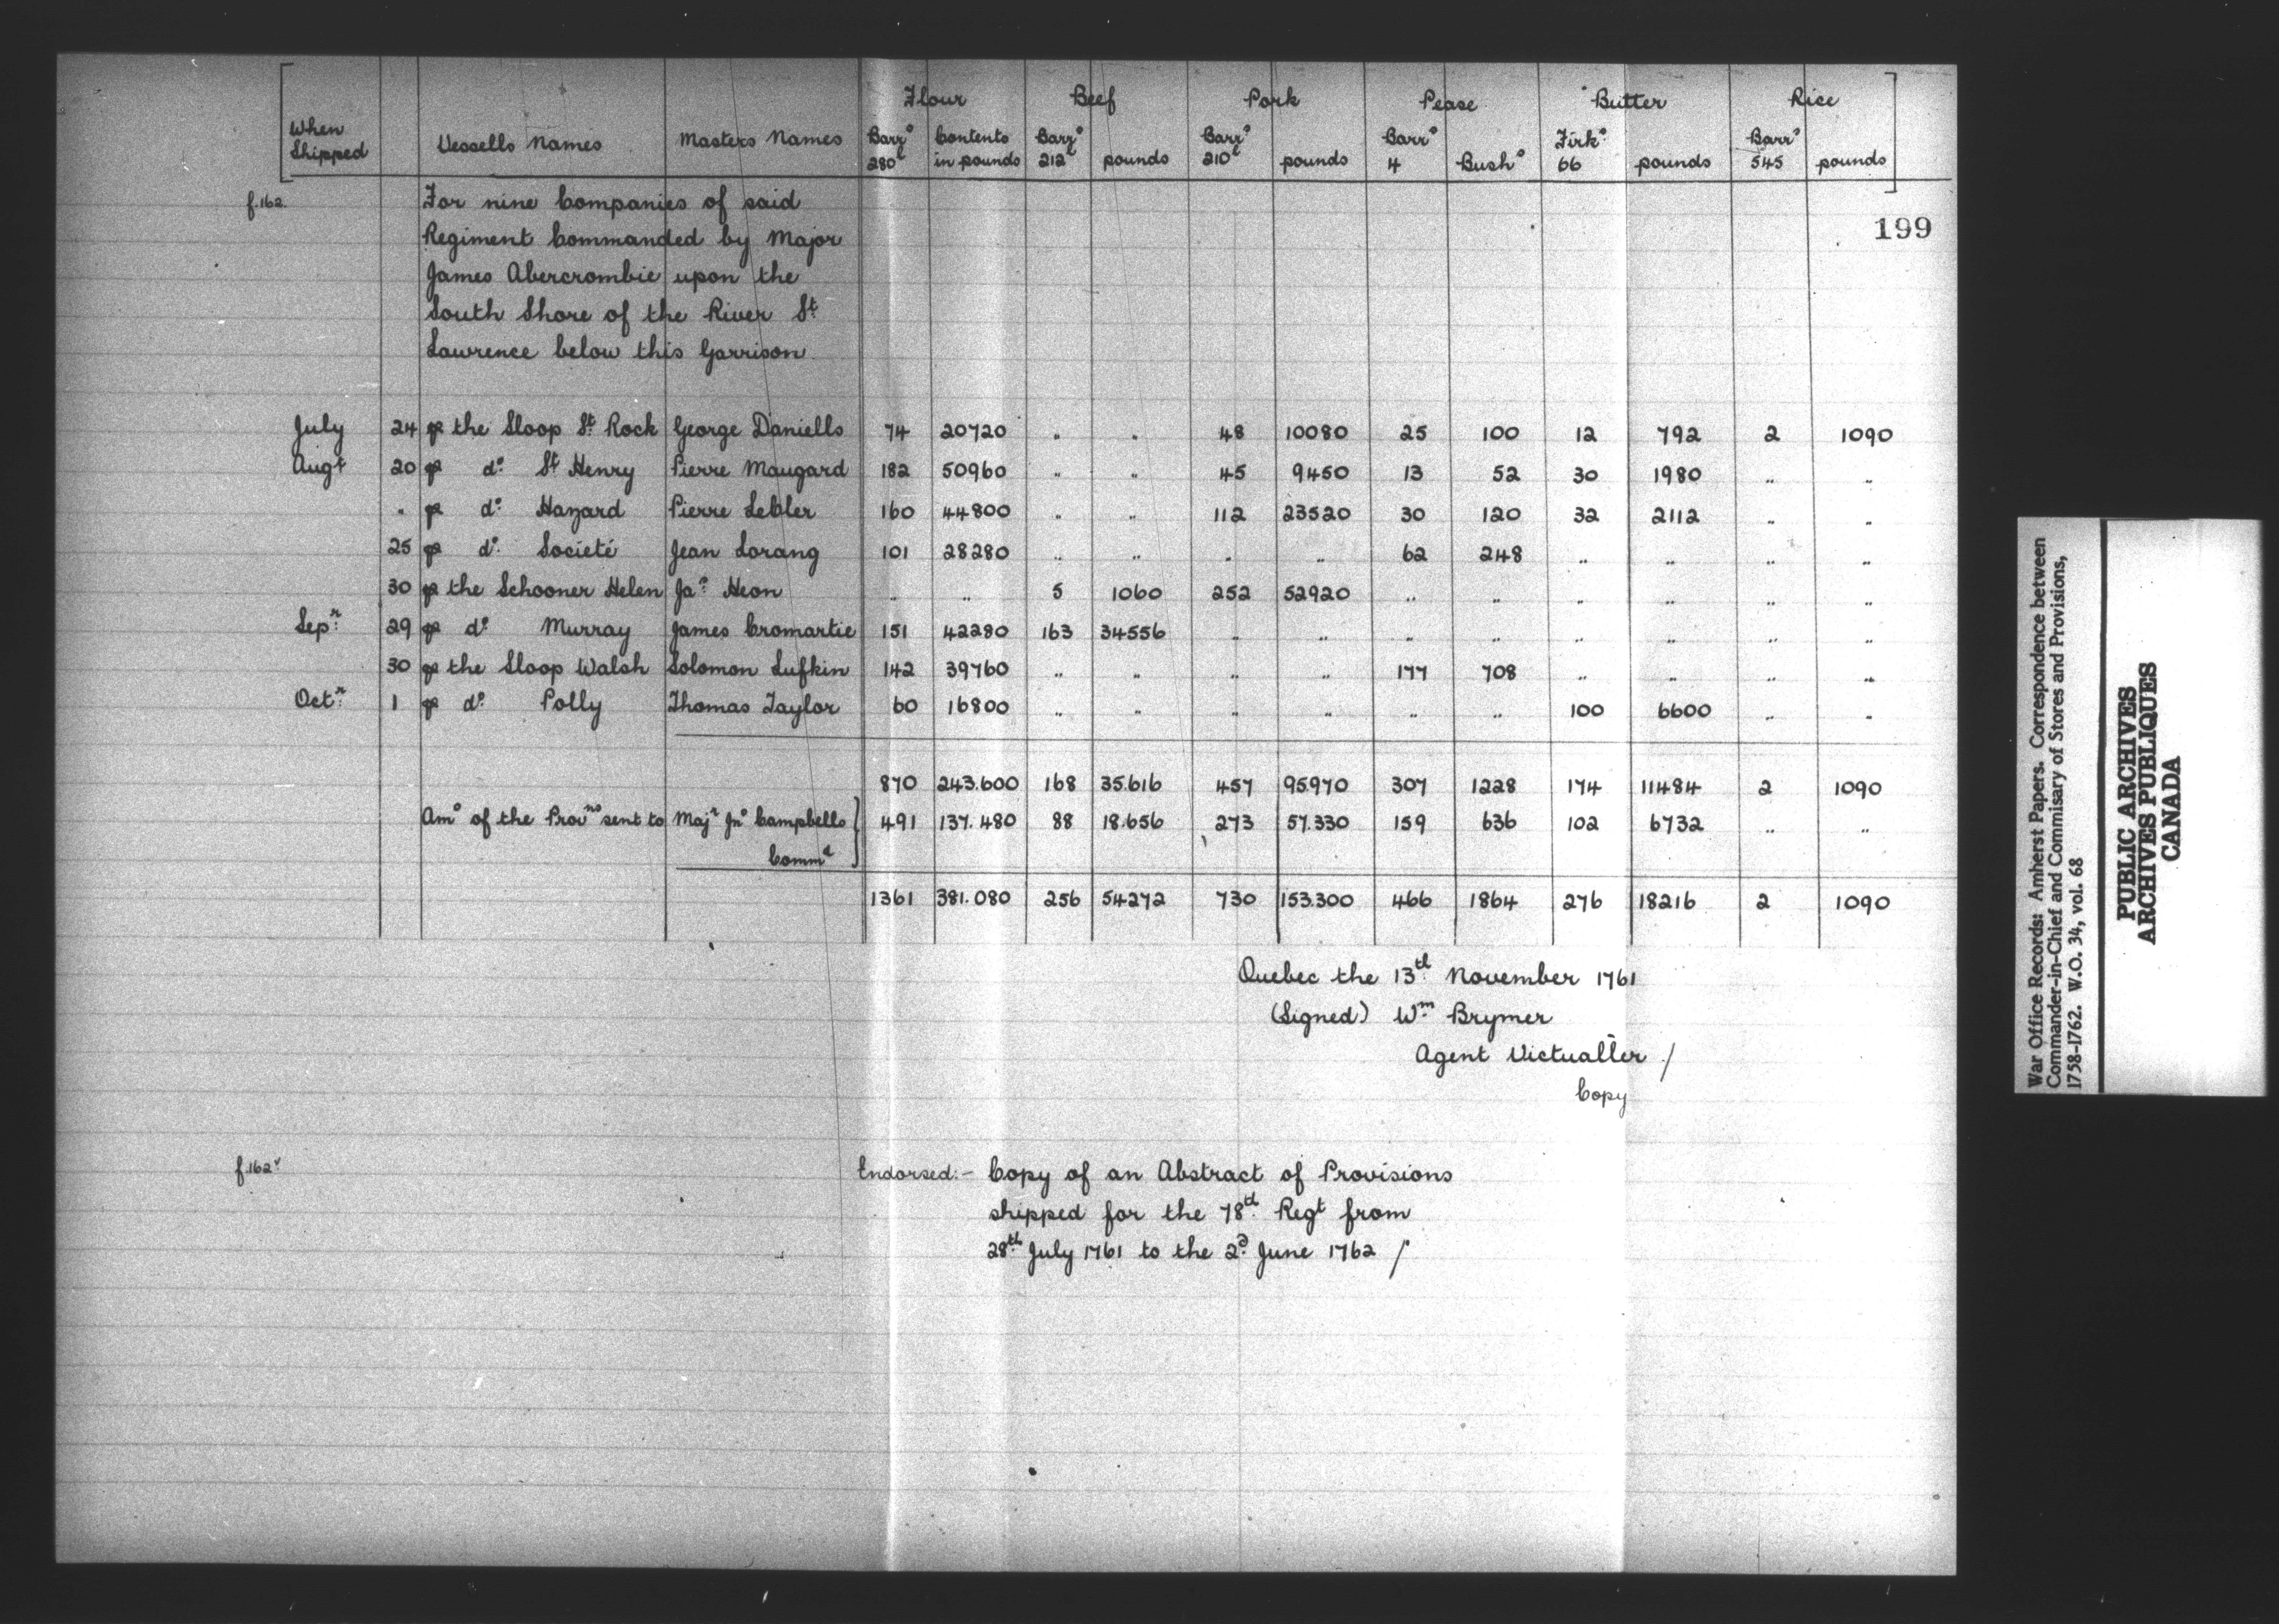 Flour Beef Pork Pease Butter Rice
When Shipped Vessells Names Masters Names Barrs 280l Contents in pounds Barrs 212l pounds Barrs 210l pounds Barrs 4 Bushs Firks 66 pounds Barrs 545 pounds
f.162. For nine Companies of said
199
Regiment Commanded by Major
James Abercrombie upon the
South Shore of the River St
Lawrence below this Garrison.
July 24 p the Sloop St Rock George Daniells 74 20720 " " 48 10080 25 100 12 792 2 1090
Augt 20 p do St Henry Pierre Maugard 182 50960 " " 45 9450 13 52 30 1980 " "
" p do Hazard Pierre Lebler 160 44800 " " 112 23520 30 120 32 2112 " "
25 p do Societé Jean Lorang 101 28280 " " " " 62 248 " " " "
30 p the Schooner Helen Jas Heon " " 5 1060 252 52920 " " " " " "
Sepr 29 p do Murray James Cromartie 151 42280 163 34556 " " " " " " " "
30 p the Sloop Walsh Solomon Lufkin 142 39760 " " " " 177 708 " " " "
Octr 1 p do Polly Thomas Taylor 60 16800 " " " " " " 100 6600 " "
870 243.600 168 35.616 457 95.970 307 1228 174 11484 2 1090
Amo of the Provns sent to Majr Jno Campbells } 491 137.480 88 18.656 273 57.330 159 636 102 6732 " "
Commd
1361 381.080 256 54272 730 153.300 466 1864 276 18216 2 1090
Quebec the 13th November 1761
(Signed) Wm Brymer
Agent Victualler /
Copy
f.162v Endorsed:- Copy of an Abstract of Provisions
shipped for the 78th Regt from
28th July 1761 to the 2d June 1762 /
War Office Records: Amherst Papers. Correspondence between
Commander-in-Chief and Commisary of Stores and Provisions,
1758-1762. W.O. 34, vol. 68
PUBLIC ARCHIVES
ARCHIVES PUBLIQUES
CANADA